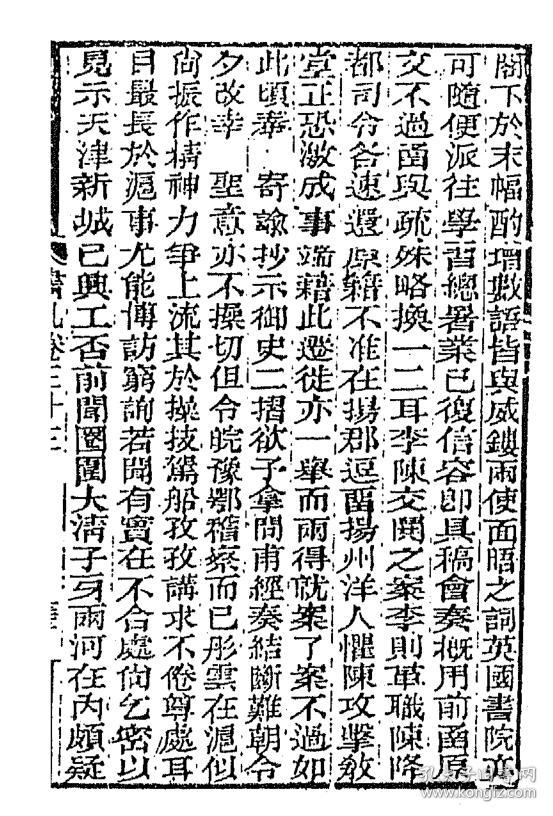 閣下於末幅酌增數語皆與威鏤兩使面晤之詞英國書院亦
可隨便派往學習總署業已復信容卽具稿會奏概用前函原
文不過函與疏殊略換一二耳李陳交鬨之案李則革職陳降
都司令各速還原籍不准在揚郡逗留揚州洋人懼陳攻擊敎
堂正恐激成事端藉此遷徙亦一舉而兩得就案了案不過如
此頃奉 寄諭抄示御史二摺欲予拿問甫經奏結斷難朝令
夕改幸 聖意亦不操切但令皖豫鄂稽察而已彤雲在滬似
尙振作精神力爭上流其於操技駕船孜孜講求不倦尊處耳
目最長於滬事尤能傳訪窮詢若聞有實在不合處尙乞密以
見示天津新城已興工否前聞圈圍大清子牙兩河在內頗疑
書札卷三十三
孔夫子旧书网
www.kongfz.com